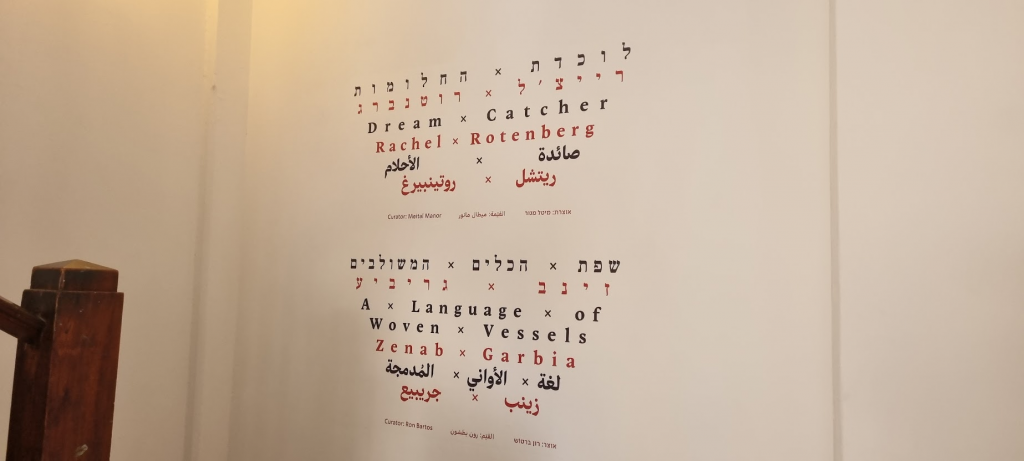 לוכדת × החלומות
רייצ׳ל × רוטנברג
Dream × Catcher
Rachel × Rotenberg
صائدة × الأحلام
ريتشل × روتينبيرغ
אוצרת: מיטל מנור القيّمة: ميطال مانور Curator: Meital Manor
שפת × הכלים × המשולבים
זינב × גריביע
A × Language × of
Woven × Vessels
Zenab × Garbia
لغة × الأواني × المُدمجة
زينب × جريبيع
אוצר: רון ברטוש القيّم: رون Curator: Ron Bartos